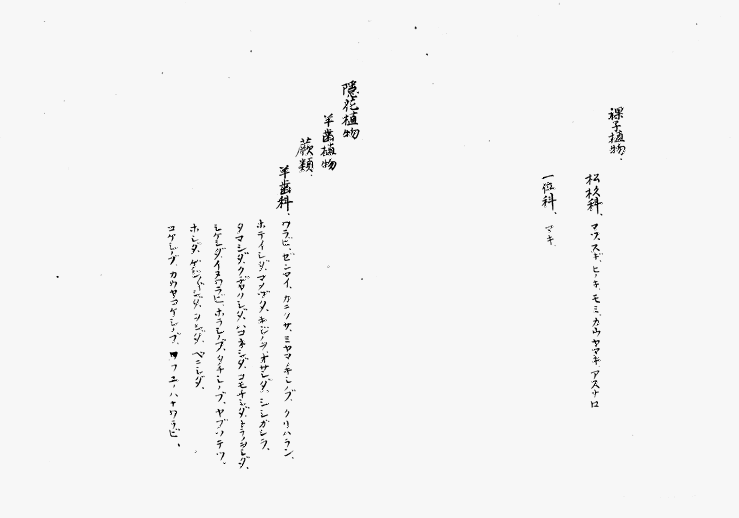 裸子植物、
松杉科、マツ、スギ、ヒノキ、モミ、カウヤマキ、アスナロ
一位科、マキ、
隠花植物
羊歯植物
蕨類、
羊歯科、ワラビ、ゼンマイ、カニクサ、ミヤマノキシノブ、クリハラン、
ホテイシダ、マメヅタ、キジノヲ、オサシダ、シシガシラ、
タマシダ、クジャクシダ、ハコネシダ、コモチシダ、トラノヲシダ、
シケシダ、イヌワラビ、ホラシノブ、タチシノブ、ヤブソテツ、
ホシダ、ゲジゲジシダ、ヲシダ、ベニシダ、
コケシノブ、カウヤコケシノブ、フユノハナワラビ、